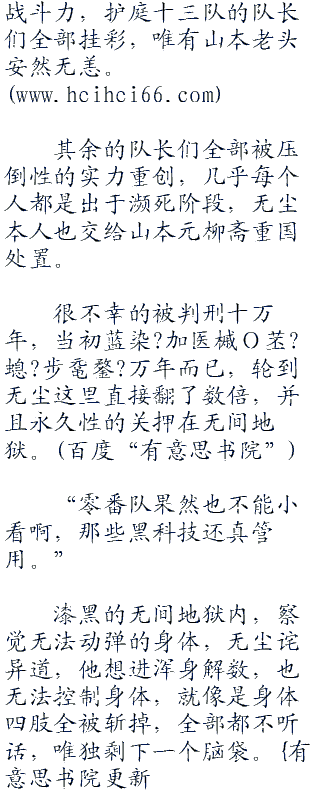 战斗力，护庭十三队的队长
们全部挂彩，唯有山本老头
安然无恙。
(www.hcihci66.com)
其余的队长们全部被压
倒性的实力重创，几乎每个
人都是出于濒死阶段，无尘
本人也交给山本元柳斋重国
处置。
很不幸的被判刑十万
年，当初蓝染?加医械Ｏ茗?
螅?步鼋鍪?万年而已，轮到
无尘这里直接翻了数倍，并
且永久性的关押在无间地
狱。(百度“有意思书院”)
“零番队果然也不能小
看啊，那些黑科技还真管
用。”
漆黑的无间地狱内，察
觉无法动弹的身体，无尘诧
异道，他想进浑身解数，也
无法控制身体，就像是身体
四肢全被斩掉，全部都不听
话，唯独剩下一个脑袋。{有
意思书院更新